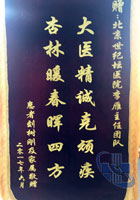 赠:北京世纪坛医院李雁主任团队
大医精诚克顽疾
杏林暖春晖四方
患者刘树刚及家属敬赠
二零一七年六月